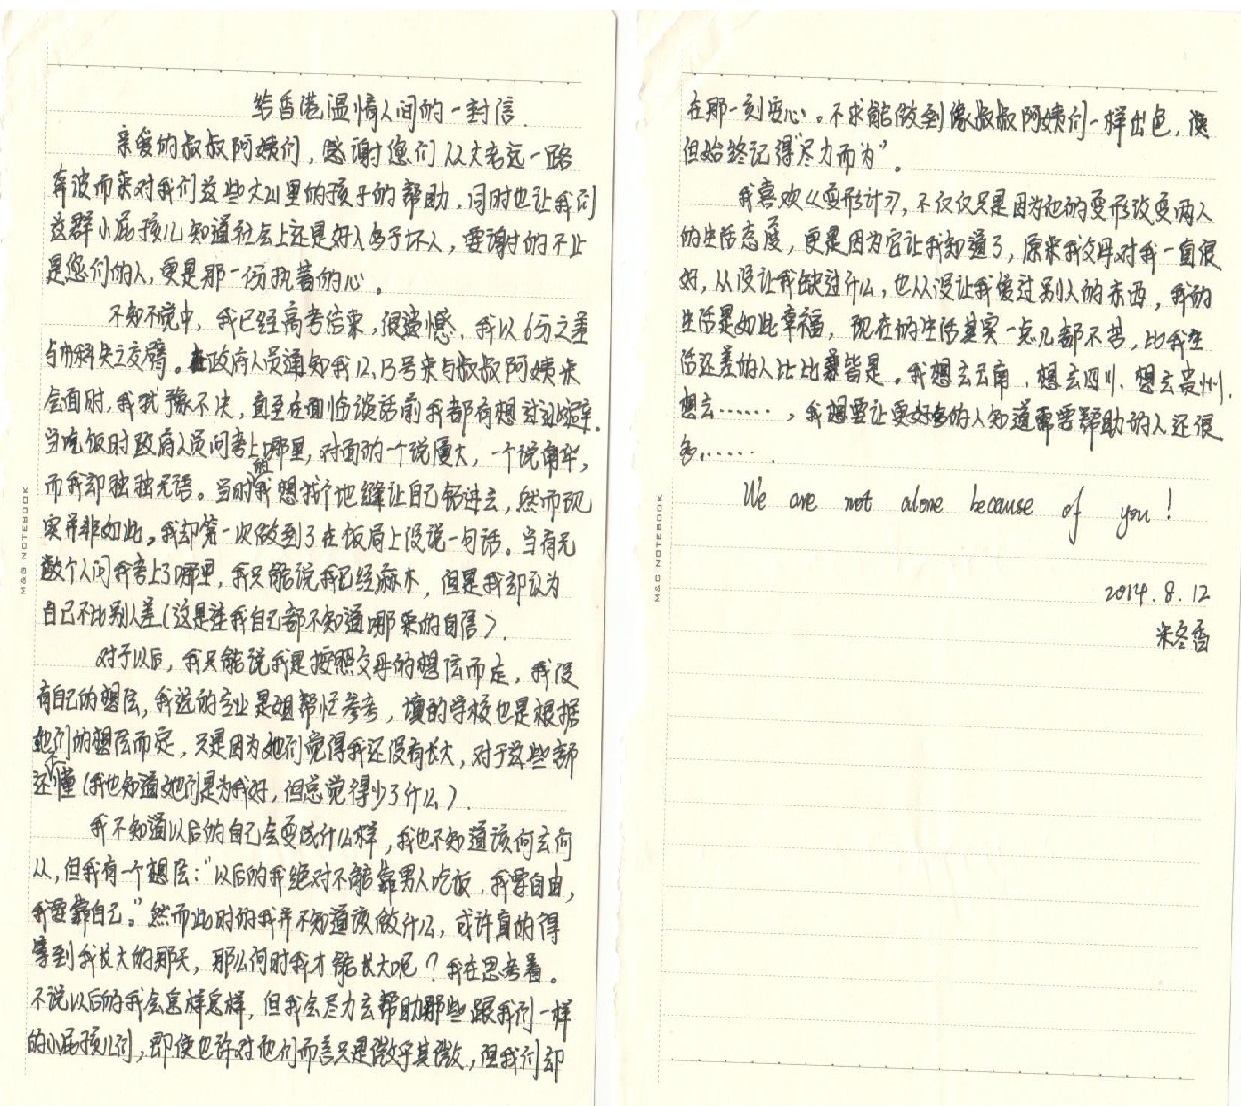 给香港温情人间的一封信.
亲爱的叔叔阿姨们，感谢您们从大老远一路
奔波而来对我们这些大山里的孩子的帮助，同时也让我们
这群小屁孩儿知道社会上还是好人多于坏人，要谢的不止
是您们的人，更是那一份执着的心。
不知不觉中，我已经高考结束，很遗憾，我以6分之差
与本科失之交臂。政府人员通知我12、13号来与叔叔阿姨来
会面时，我犹豫不决，直至在面临谈话前我都有想过退缩.
当吃饭时政府人员问考上哪里，对面的一个说厦大，一个说南华，
而我却独独无语。当时的我想找个地缝让自己钻进去，然而现
实并非如此。我却第一次做到了在饭局上没说一句话。当有无
数个人问我考上了哪里，我只能说我已经麻木，但是我却认为
自己不比别人差（这是连我自己都不知道哪来的自信）.
对于以后，我只能说我是按照父母的想法而走，我没
有自己的想法，我选的专业是姐帮忙参考，填的学校也是根据
她们的想法而定，只是因为她们觉得我还没有长大，对于这些都
还不懂（我也知道她们是为我好，但总觉得少了什么）.
我不知道以后的自己会变成什么样，我也不知道该何去何
从，但我有一个想法：“以后的我绝对不能靠男人吃饭，我要自由，
我要靠自己。”然而此时的我并不知道该做什么，或许真的得
等到我长大的那天，那么何时我才能长大呢？我在思考着。
不说以后的我会怎样怎样，但我会尽力去帮助那些跟我们一样
的小屁孩儿们，即使也许对他们而言只是微乎其微，但我们却
M&G NOTEBOOK
在那一刻安心。不求能做到像叔叔阿姨们一样出色，
但始终记得“尽力而为”。
我喜欢《变形计》，不仅仅只是因为他的变形改变两人
的生活态度，更是因为它让我知道了，原来我父母对我一直很
好，从没让我缺过什么，也从没让我爱过别人的东西，我的
生活是如此幸福，现在的生活其实一点儿都不苦，比我生
活还差的人比比皆是。我想去云南，想去四川，想去贵州，
想去……，我想要让更好多的人知道需要帮助的人还很
多……
We are not alone because of you!
2014.8.12
米冬香
M&G NOTEBOOK